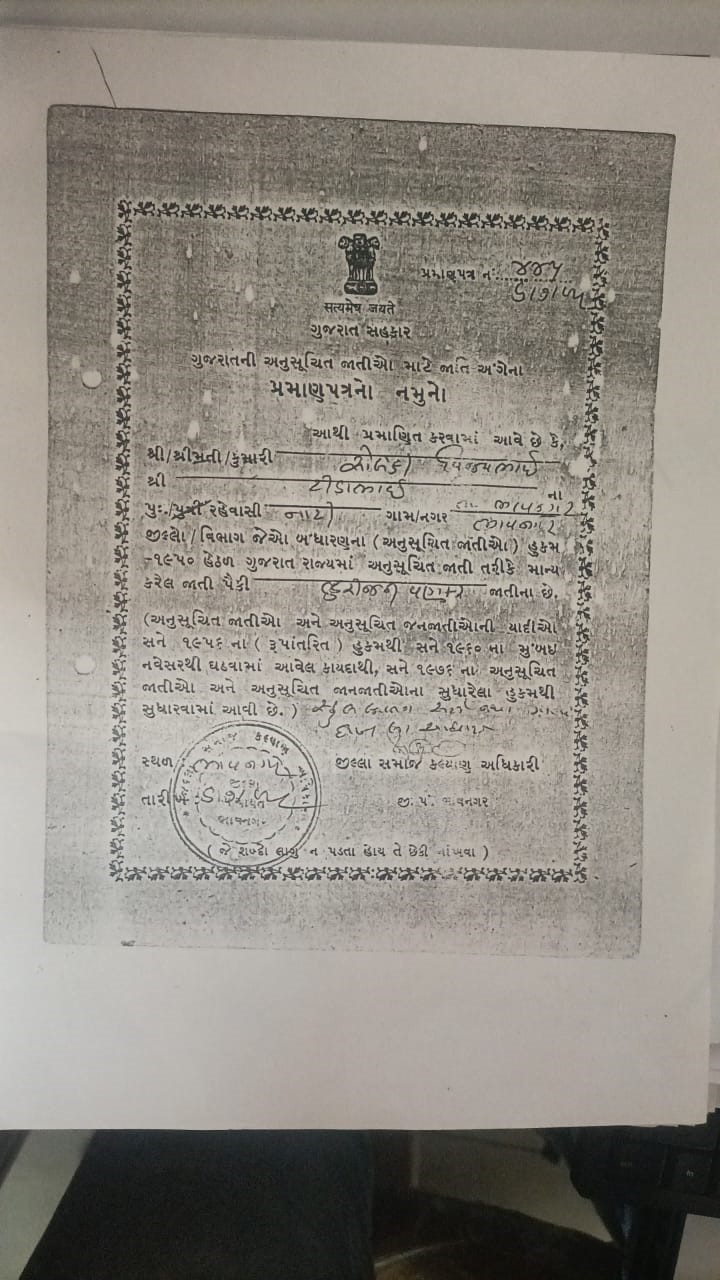 પ્રમાણપત્ર નં. ૪૪૫
સત્યમેવ જયતે
ગુજરાત સરકાર
ગુજરાતની અનુસૂચિત જાતીઓ માટે જાતિ અંગેના
પ્રમાણપત્રનો નમુનો
આથી પ્રમાણિત કરવામાં આવે છે કે,
શ્રી/શ્રીમતી/કુમારી સોલંકી વિજયભાઈ
શ્રી ટીડાભાઈ ના
પુત્ર/પુત્રી રહેવાસી ગામ/નગર તા. ભાવનગર
ભાવનગર
જીલ્લો/વિભાગ જેઓ બંધારણના (અનુસૂચિત જાતીઓ) હુકમ
-૧૯૫૦ હેઠળ ગુજરાત રાજ્યમાં અનુસૂચિત જાતી તરીકે માન્ય
કરેલ જાતી પૈકી હરીજન વણકર જાતીના છે.
(અનુસૂચિત જાતીઓ અને અનુસૂચિત જનજાતીઓની યાદીઓ
સને ૧૯૫૬ ના (રૂપાંતરિત) હુકમથી સને ૧૯૬૦ ના મુંબઇ
નવેસરથી ઘડવામાં આવેલ કાયદાથી, સને ૧૯૭૬ ના અનુસૂચિત
જાતીઓ અને અનુસૂચિત જાનજાતીઓના સુધારેલા હુકમથી
સુધારવામાં આવી છે.)
સ્થળ ભાવનગર
જીલ્લા સમાજ કલ્યાણ અધિકારી
તારીખ
જી. પં. ભાવનગર
સમાજ કલ્યાણ
ભાવનગર
(જે શબ્દો લાગુ ન પડતા હોય તે છેકી નાંખવા)